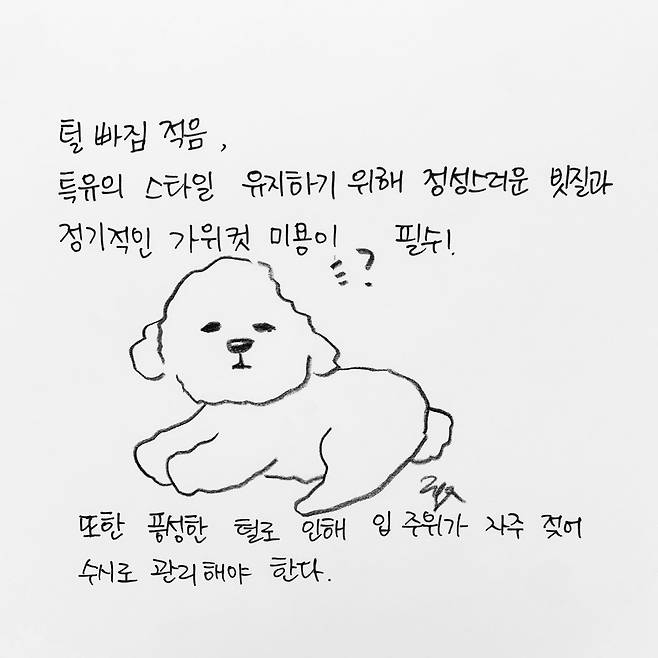 털 빠짐 적음,
특유의 스타일 유지하기 위해 정성스러운 빗질과
정기적인 가위컷 미용이 필수!
?
또한 풍성한 털로 인해 입 주위가 자주 젖어
수시로 관리해야 한다.